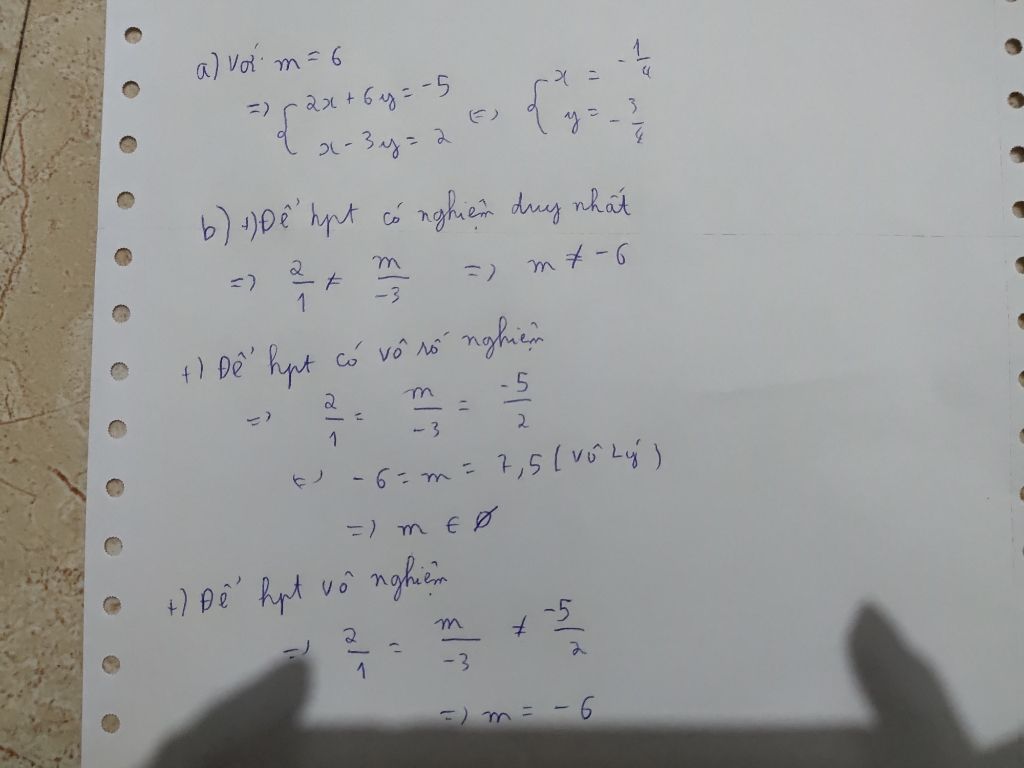 a) Với m = 6
=> { 2x + 6y = -5 <=> { x = -1/4
x - 3y = 2 y = -3/4
b) +) Để hpt có nghiệm duy nhất
=> 2/1 ≠ m/-3 => m ≠ -6
+) Để hpt có vô số nghiệm
=> 2/1 = m/-3 = -5/2
<=> -6 = m = 7,5 (vô lý)
=> m ∈ ∅
+) Để hpt vô nghiệm
=> 2/1 = m/-3 ≠ -5/2
=> m = -6